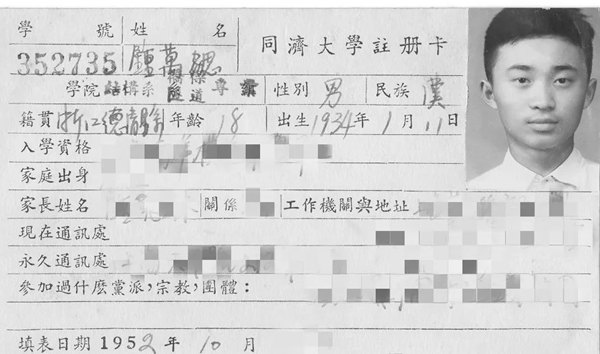 學號 姓名
352735 鍾萬勰 同濟大學註册卡
學院 結構系 橋樑隧道 專業 性別 男 民族 漢
籍貫 浙江德清縣 年齡 18 出生1934年1月11日
入學資格
家庭出身
家長姓名 關係 工作機關與地址
現在通訊處
永久通訊處
參加過什麽黨派,宗教,團體:
填表日期 1952年10月